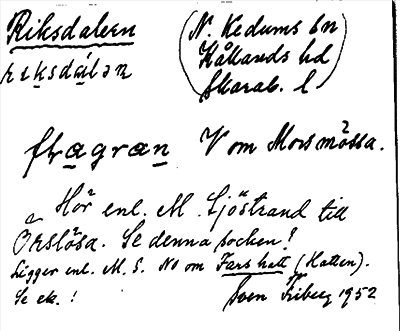 Riksdalern (N. Kedums sn
rɩksdálən Kållands hd
Skarab. l.)
frågran V om Morsmössa.
Hör enl. M. Sjöstrand till
Örslösa. Se denna socken!
Ligger enl. M. S. NO om Farshatt (Hatten).
Se ek.!
Sven Friberg 1952